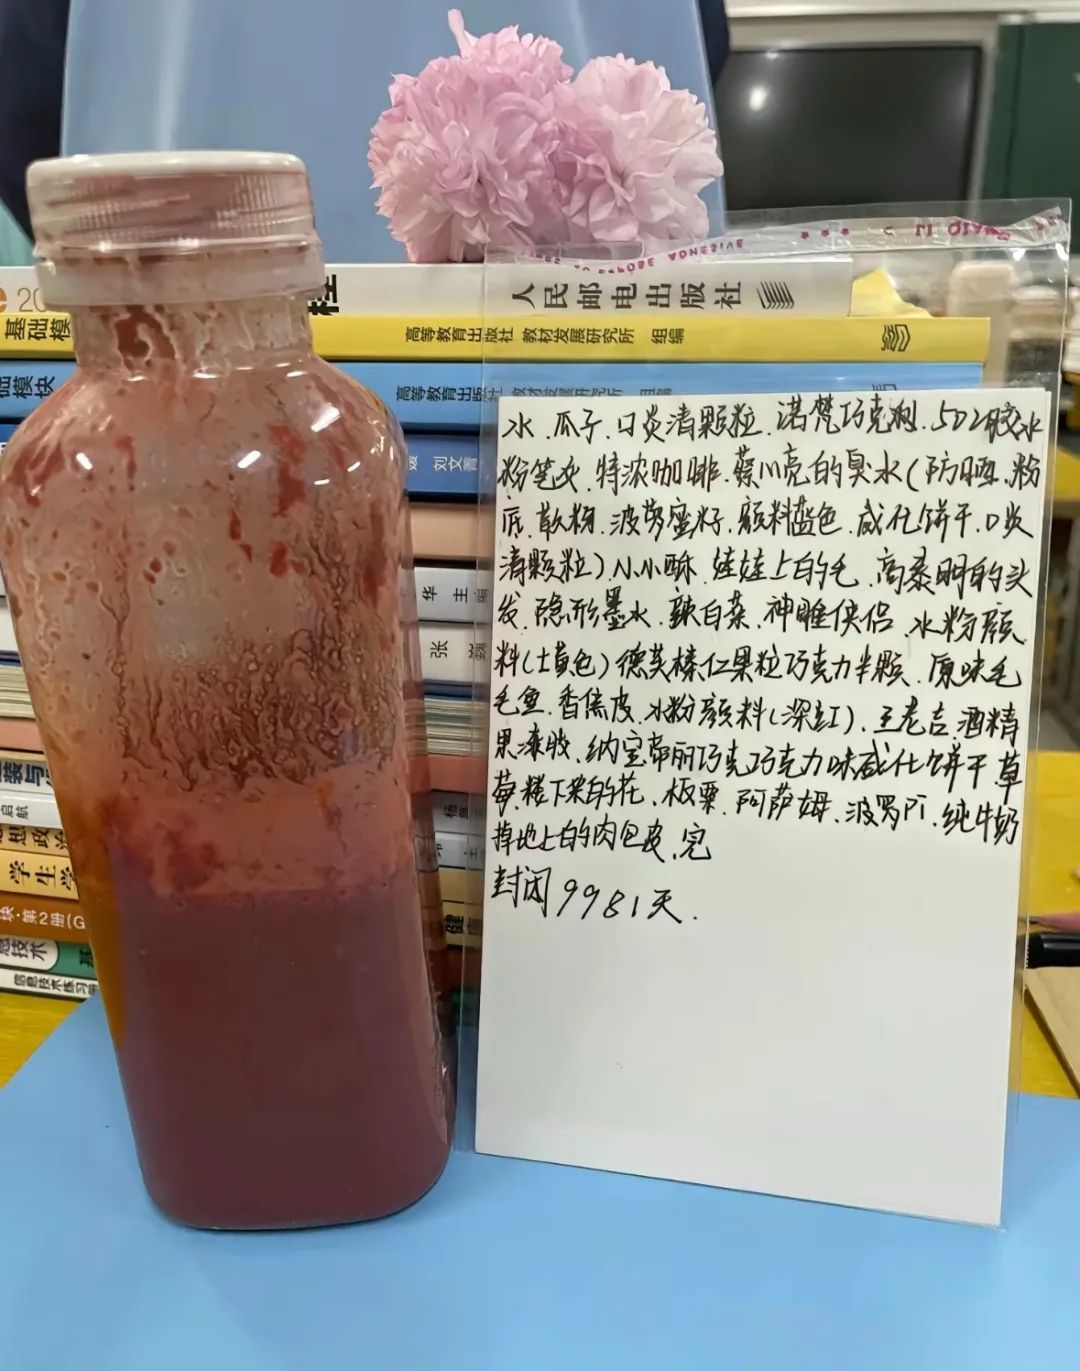 人民邮电出版社
基础模
高等教育出版社 教材发展研究所 组编
础模块
高等教育出版社
刘文菁
华 主 编
张 巍
装与
启航
想政治
学生学
块·第2册(G
息技术
信息技术练习册
健康
水、瓜子、口炎清颗粒、诺梵巧克力、502胶水
粉笔灰、特浓咖啡、蔡小亮的臭水(防晒、粉
底、散粉、波萝蜜籽、颜料蓝色、威化饼干、口炎
清颗粒)、小小酥、娃娃上的毛、高泰明的头
发、隐形墨水、辣白菜、神雕侠侣、水粉颜
料(土黄色)德芙榛仁果粒巧克力半颗、原味毛
毛鱼、香蕉皮、水粉颜料(深红)、王老吉、酒精
果漆胶、纳宝帝丽巧克巧克力味威化饼干、草
莓、楼下采的花、板栗、阿萨姆、波罗π、纯牛奶
掉地上的肉包皮、完
封闭9981天.